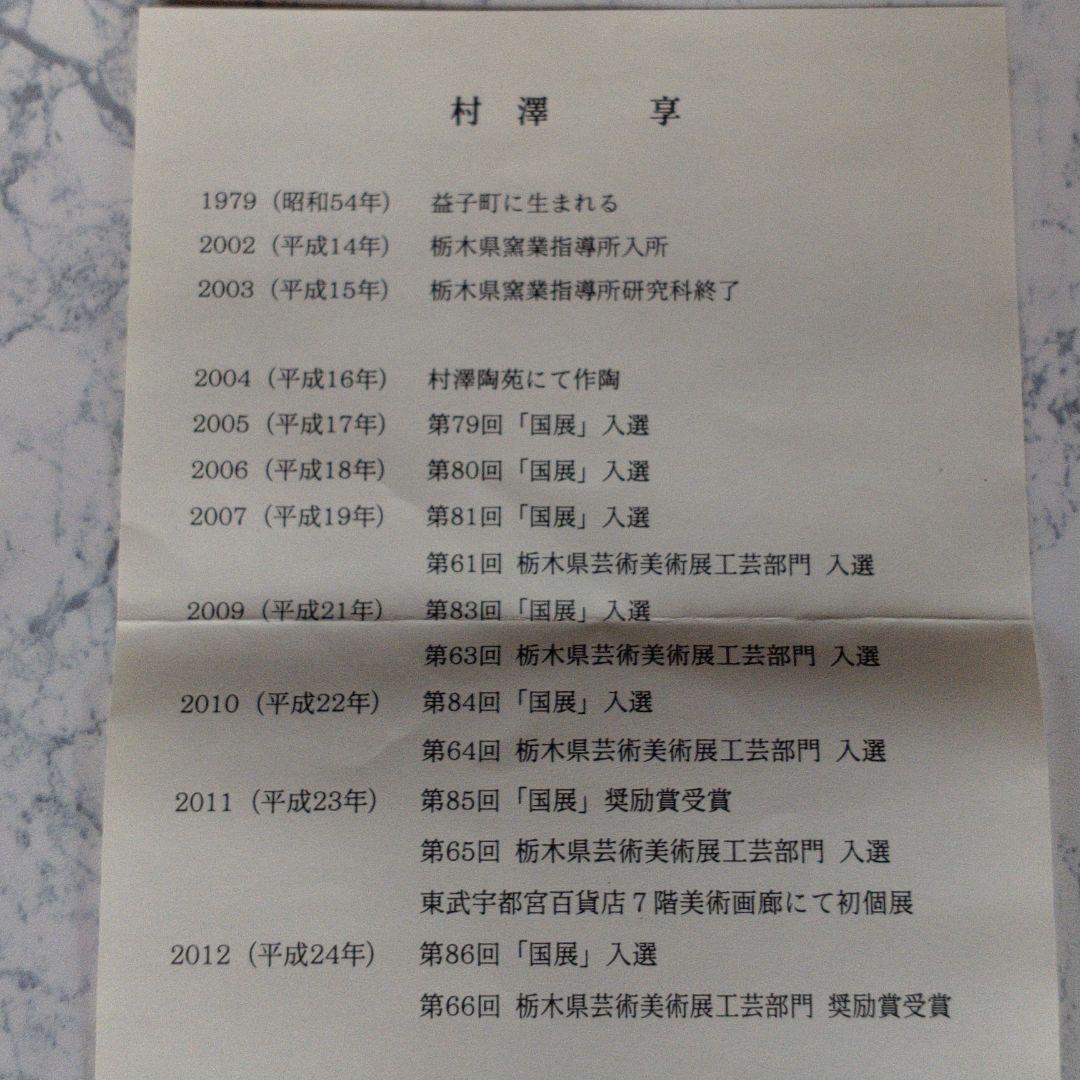 村澤　享
1979（昭和54年）　益子町に生まれる
2002（平成14年）　栃木県窯業指導所入所
2003（平成15年）　栃木県窯業指導所研究科終了
2004（平成16年）　村澤陶苑にて作陶
2005（平成17年）　第79回「国展」入選
2006（平成18年）　第80回「国展」入選
2007（平成19年）　第81回「国展」入選
第61回 栃木県芸術美術展工芸部門 入選
2009（平成21年）　第83回「国展」入選
第63回 栃木県芸術美術展工芸部門 入選
2010（平成22年）　第84回「国展」入選
第64回 栃木県芸術美術展工芸部門 入選
2011（平成23年）　第85回「国展」奨励賞受賞
第65回 栃木県芸術美術展工芸部門 入選
東武宇都宮百貨店７階美術画廊にて初個展
2012（平成24年）　第86回「国展」入選
第66回 栃木県芸術美術展工芸部門 奨励賞受賞